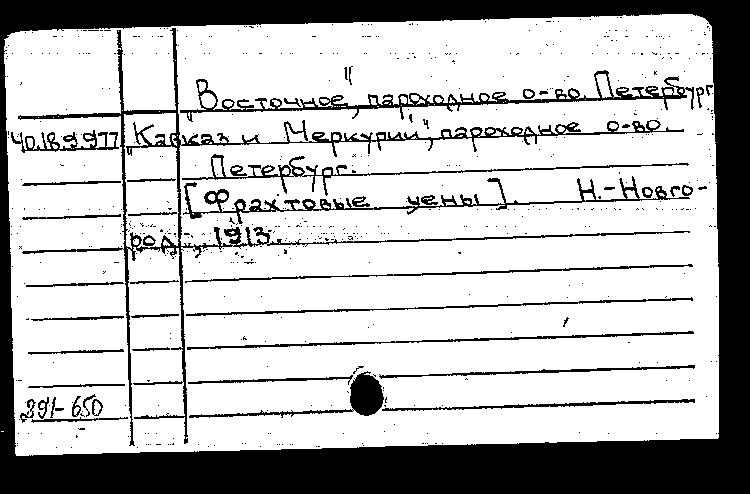 "Восточное", пароходное о-во. Петербург
40.18.9977 "Кавказ и Меркурий", пароходное о-во.
Петербург.
[Фрахтовые цены]. Н.-Новго-
род, 1913.
291-650